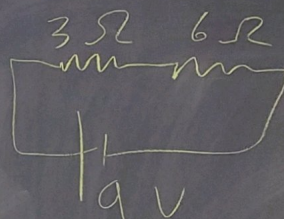 3 Ω 6 Ω
9 V